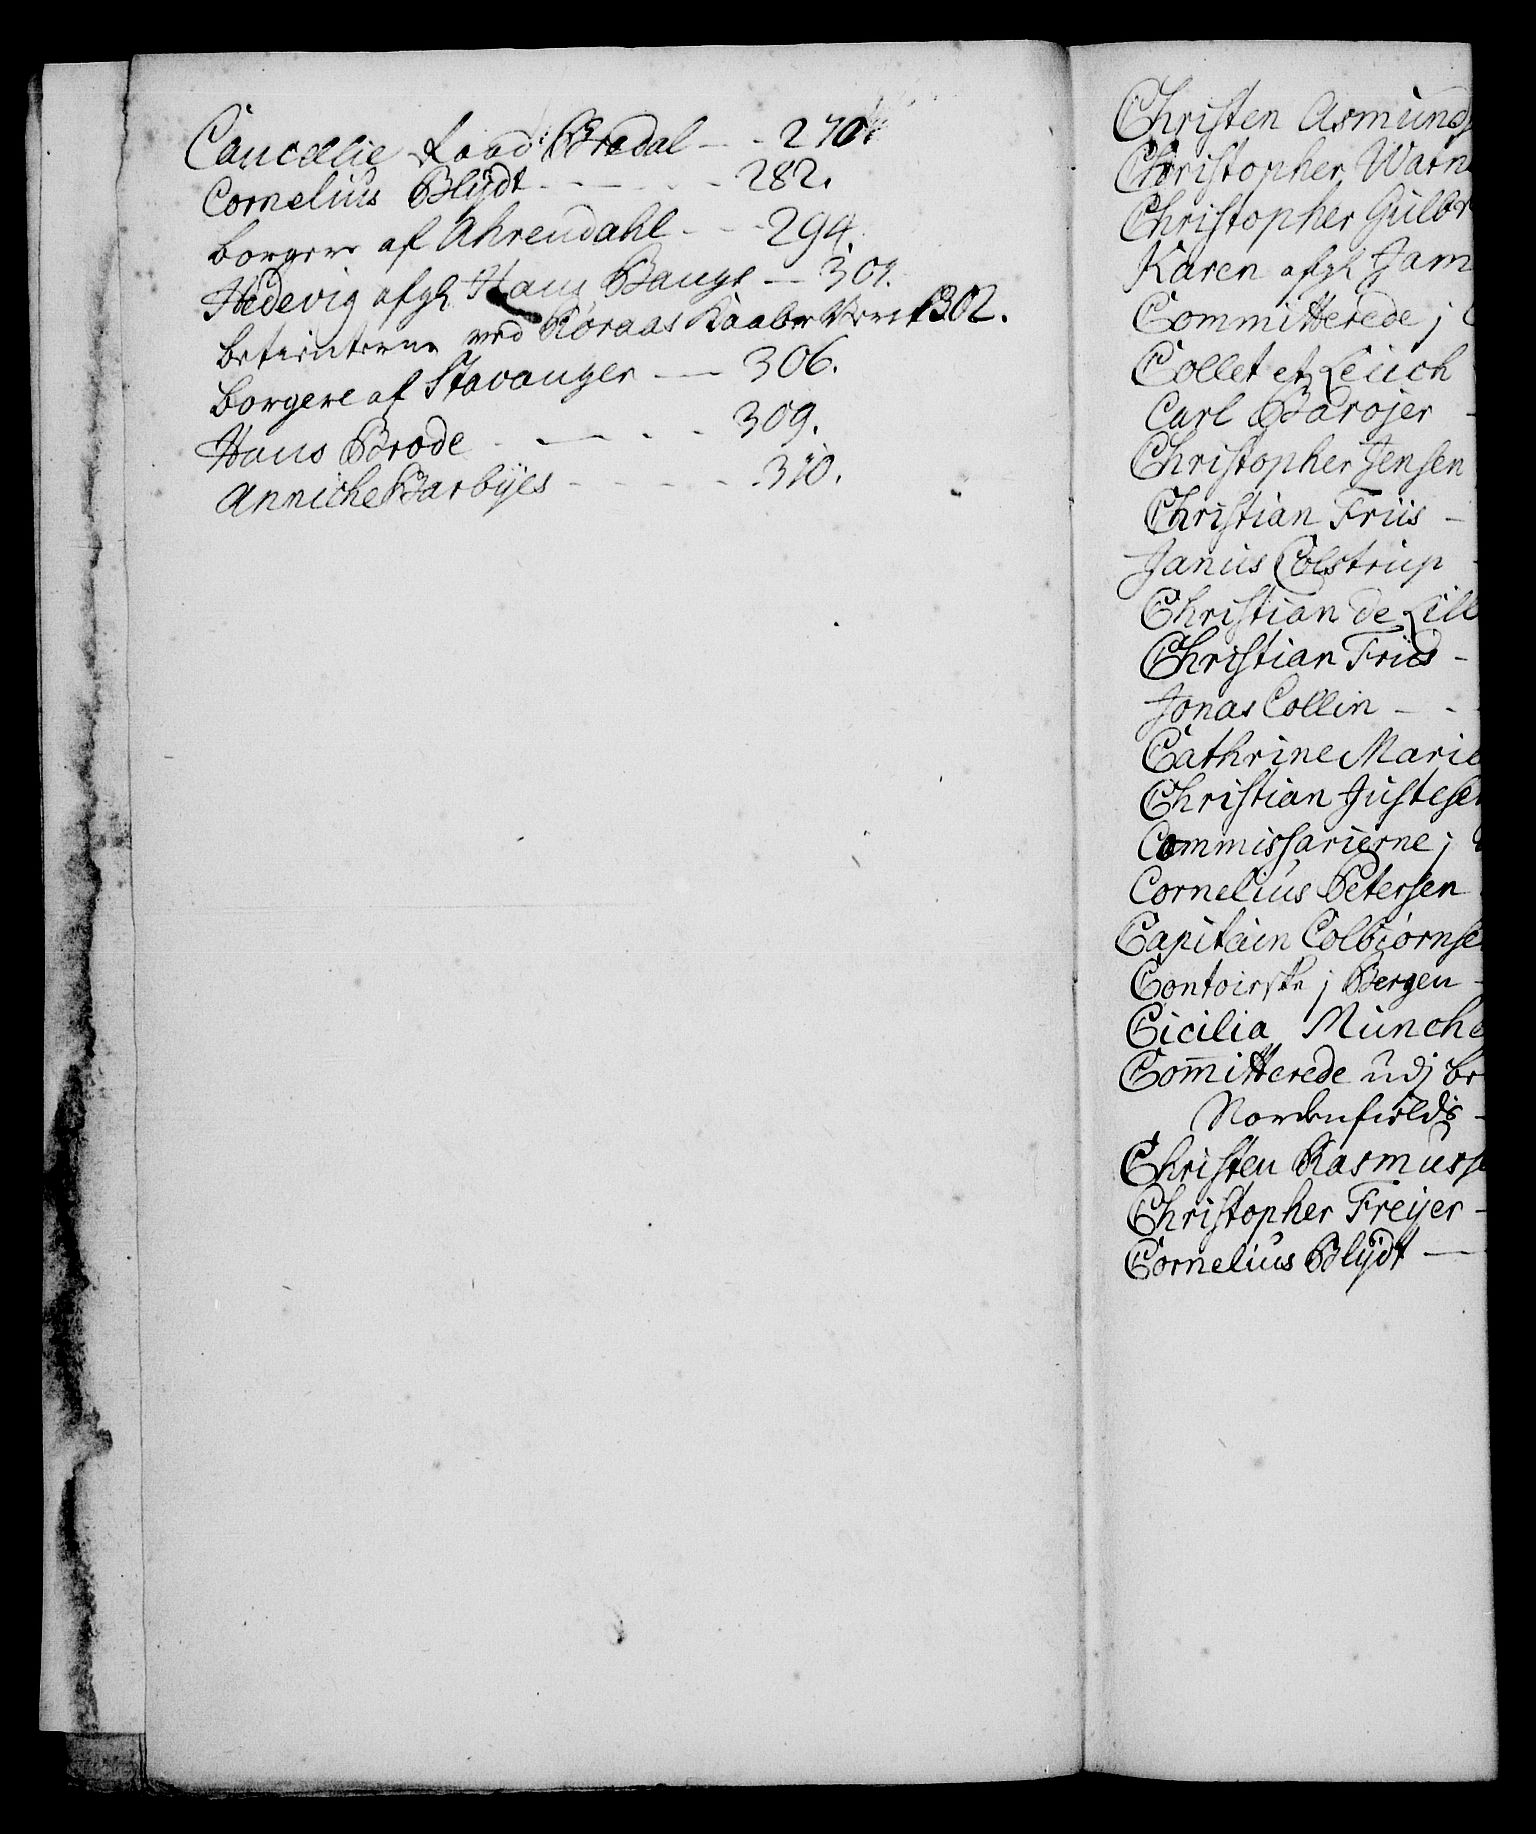 Cancelie Raad Bredal - - 270
Cornelius Blÿdt - - - - - 282.
borgere af Ahrendahl - - - 294.
Hedevig afgl. Hans Bangs — 301.
betienterne ved Röraas Kaaber Verck 302.
borgere af Stavanger — 306.
Hans Brode - - - - - 309.
Anniche Barbÿes - - - - - 310.
Christen Asmunds
Christopher Warn
Christopher Gulbr
Karen afgl. Jam
Committerede j
Collet et Leuch
Carl Barojer -
Christopher Jensen
Christian Friis -
Janus Colstrup -
Christian de Lill
Christian Friis -
Jonas Collin - -
Cathrine Marie
Christian Justesen
Commissarierne j
Cornelius Petersen
Capitain Colbiørnse
Contoirske j Bergen -
Cicilia Munche
Com̅itterede udj be
Nordenfields -
Christen Rasmusse
Christopher Freÿer -
Cornelius Blÿdt —